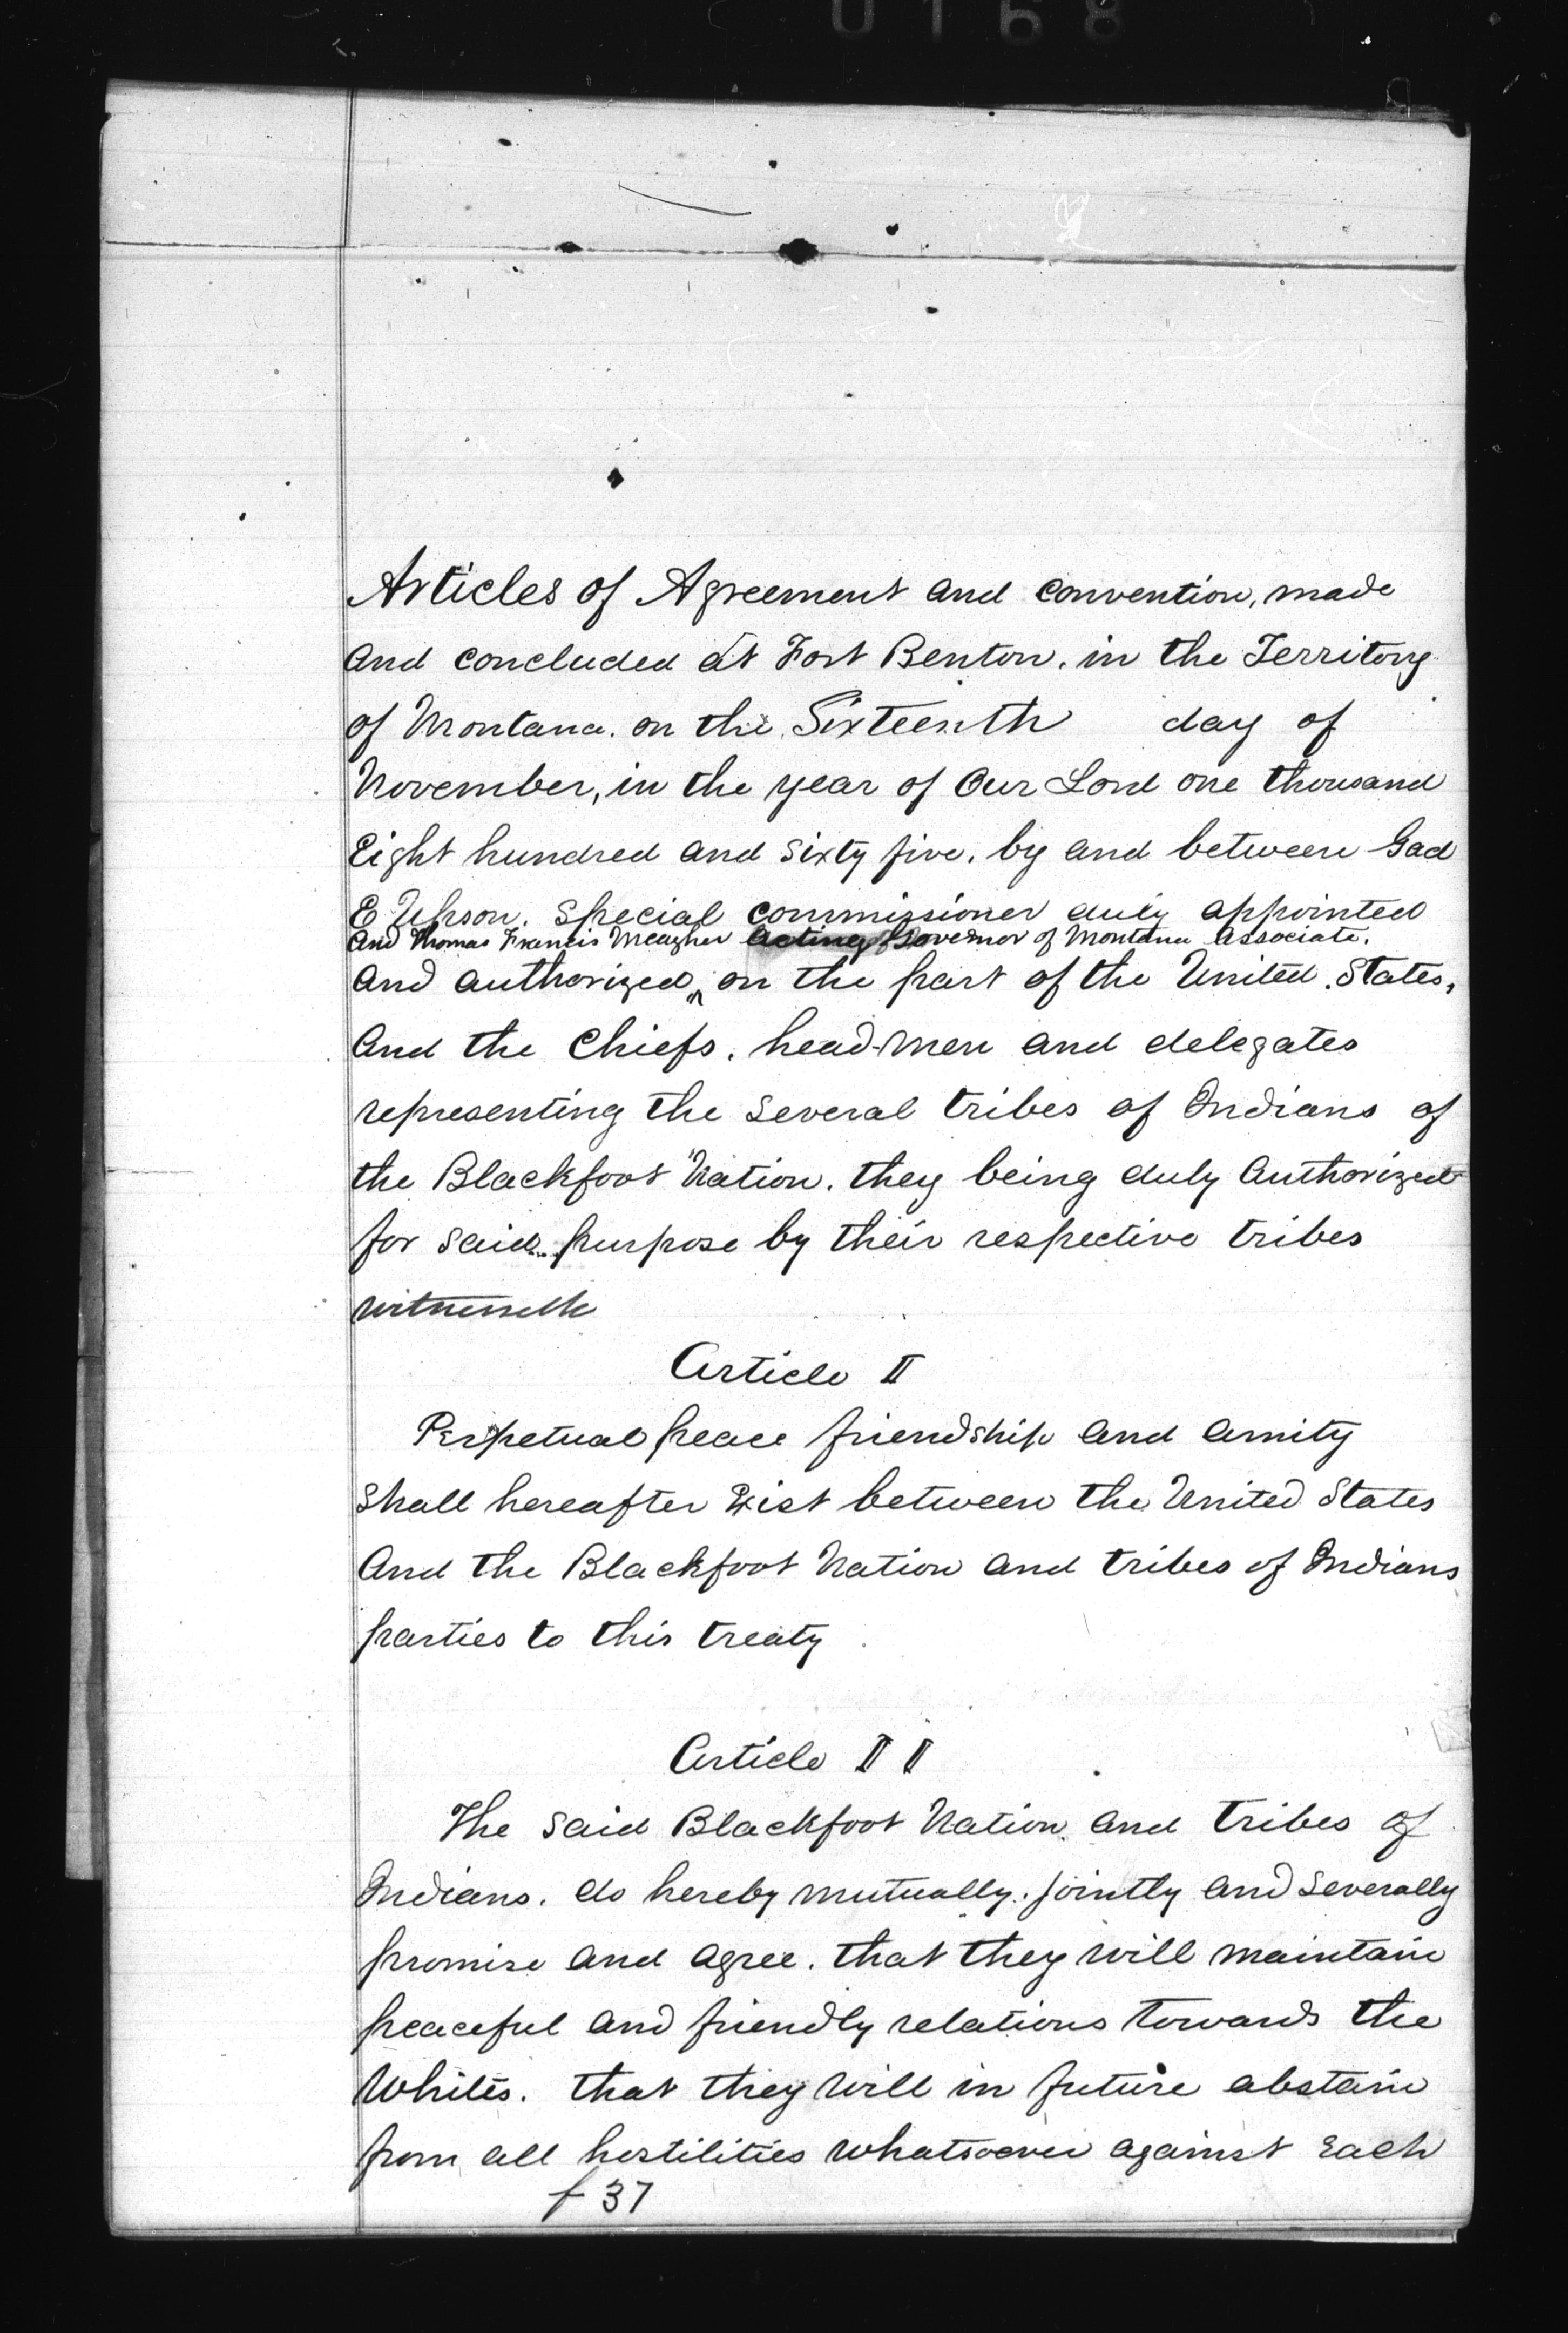 0168
Articles of Agreement and convention, made
and concluded at Fort Benton. in the Territory
of Montana. on the Sixteenth day of
November, in the year of Our Lord one thousand
Eight hundred and sixty five. by and between Gad
E Upson. Special commissioner duly appointed
and Thomas Francis Meagher Acting Governor of Montana Associate.
and authorized ^ on the part of the United States,
and the Chiefs. head-men and delegates
representing the several tribes of Indians of
the Blackfoot Nation. they being duly authorized
for said purpose by their respective tribes
witnesseth
Article I
Perpetual peace friendship and amity
shall hereafter Exist between the United States
and the Blackfoot Nation and tribes of Indians
parties to this treaty
Article II
The said Blackfoot Nation and tribes of
Indians. do hereby mutually. jointly and severally
promise and agree. that they will maintain
peaceful and friendly relations towards the
Whites. that they will in future abstain
from all hostilities whatsoever against Each
f 37